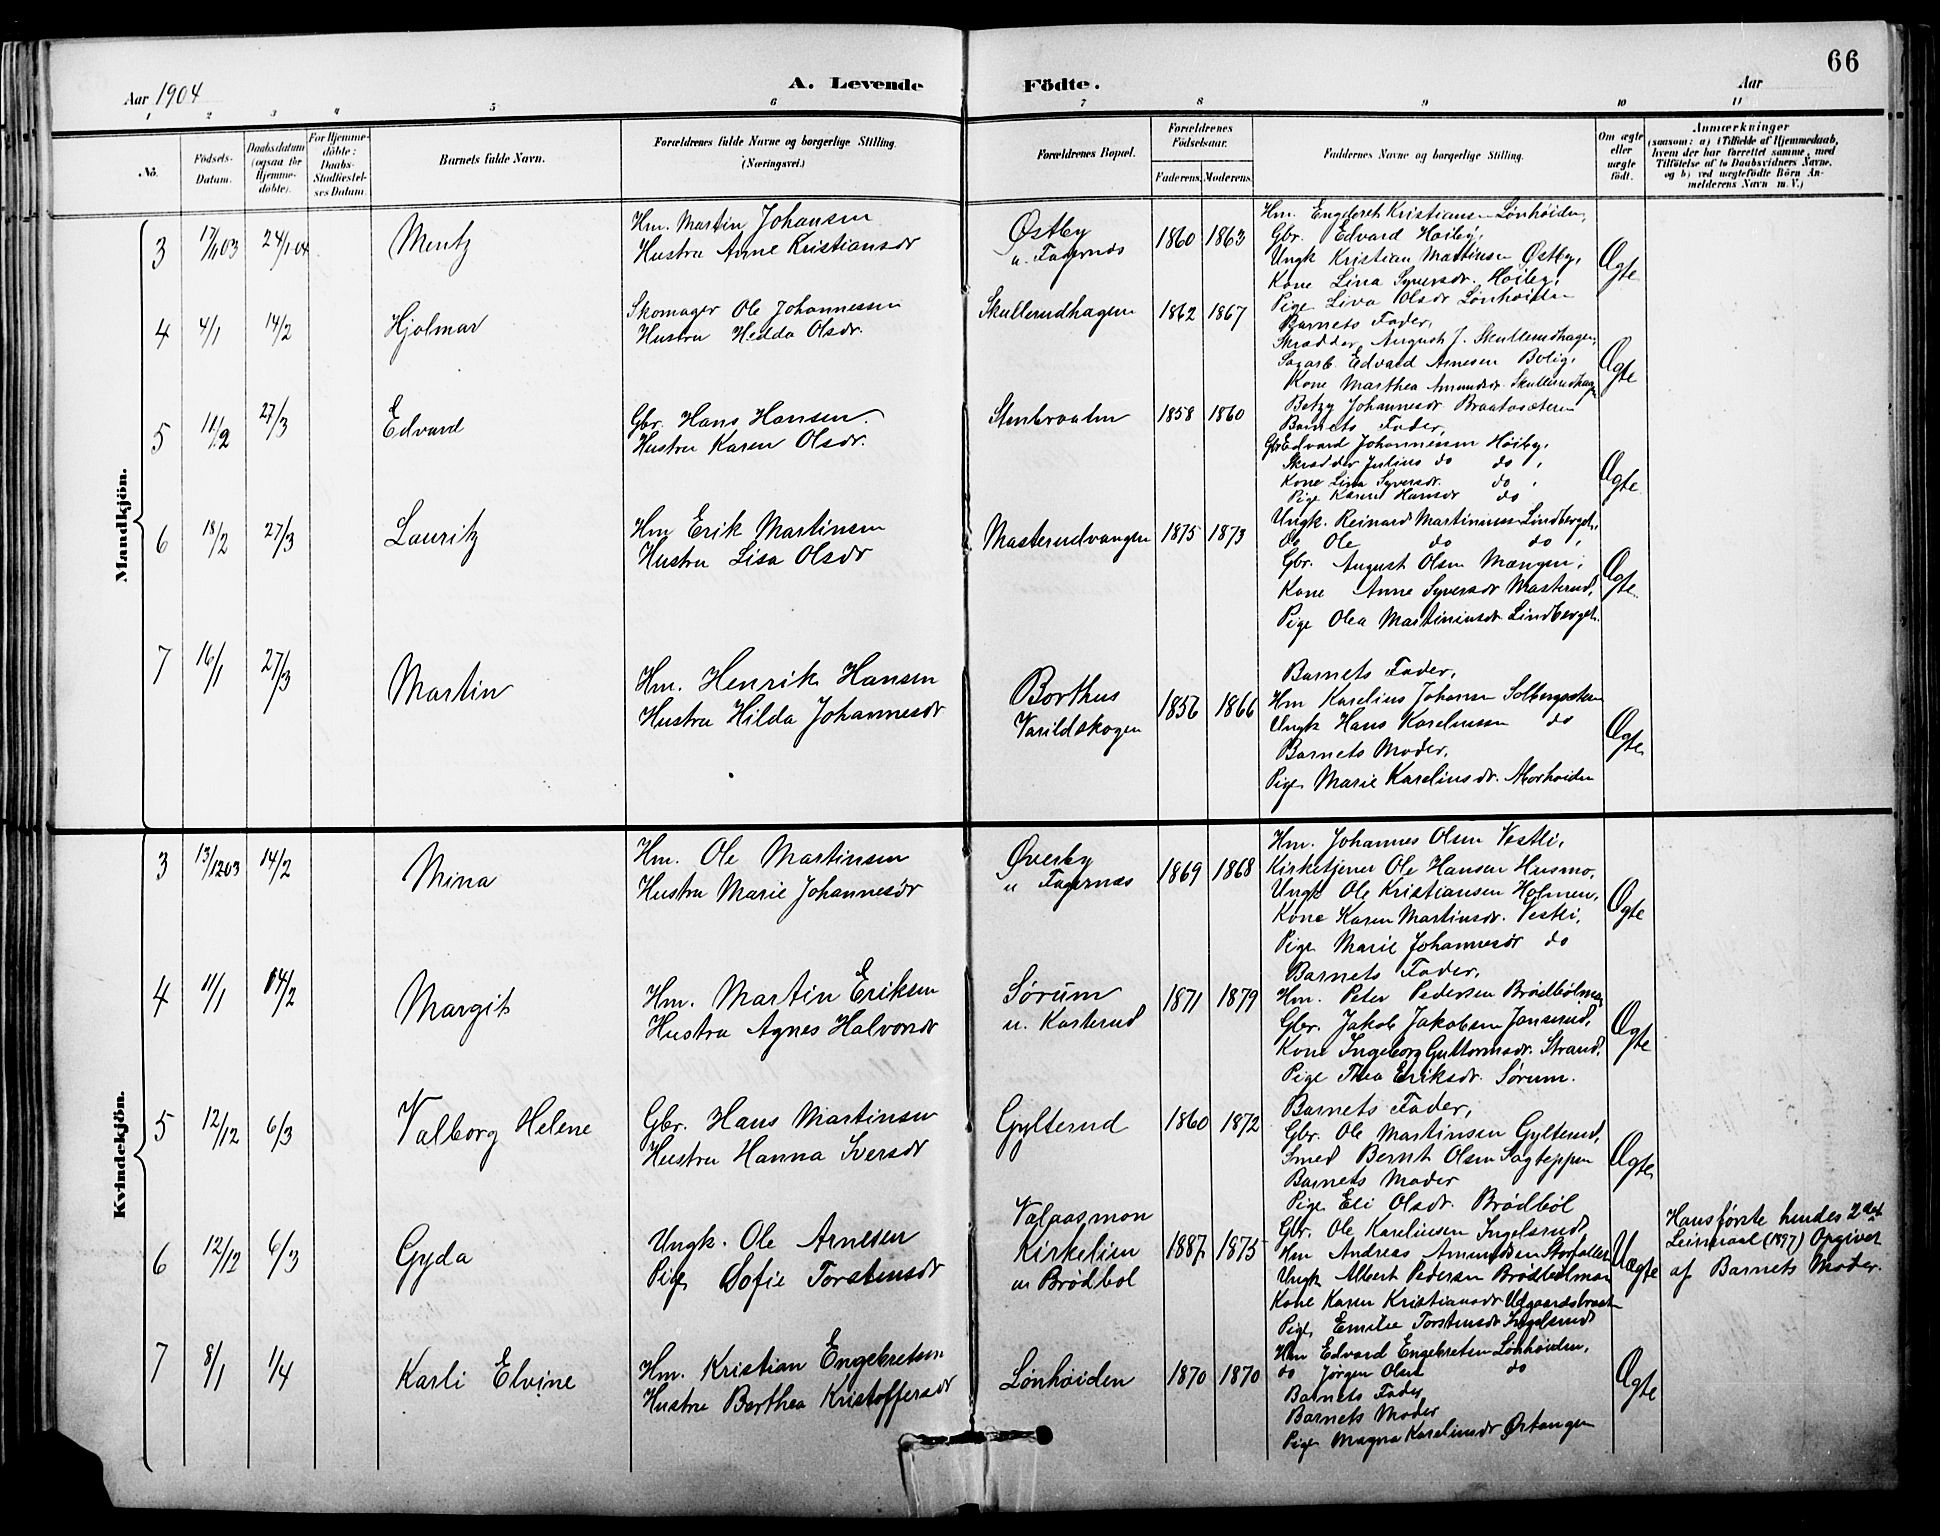 66
Aar 1904
A. Levende Födte.
Aar
1 2 3 4 5 6 7 8 9 10 11
No.
Födsels-Datum.
Daabsdatum (ogsaa for Hjemmedöbte).
For Hjemmedöbte: Daabs-Stadfæstelses Datum.
Barnets fulde Navn.
Forældrenes fulde Navne og borgerlige Stilling. (Næringsvei.)
Forældrenes Bopæl.
Forældrenes Födselsaar.
Faderens. Moderens.
Faddernes Navne og borgerlige Stilling.
Om ægte eller uægte födt.
Anmærkninger
(saasom: a) i Tilfælde af Hjemmedaab,
hvem der har forrettet samme, med
Tilföielse af to Daabsvidners Navne,
og b) ved uægtefödte Börn An-
melderens Navn m. V.)
Mandkjön.
3 17/1103 24/1-04 Mentz
Hm. Martin Johansen
Hustru Anne Kristiansdr
Østby
u. Fagernæs
1860 1863
Hm. Engebret Kristiansen Lønhøiden,
Gbr. Edvard Høiby,
Ungk Kristian Martinsen Østby,
Kone Lina Syversdr. Høiby,
Pige Lina Olsdr Lønhøiden
Ægte
4 4/1 14/2 Hjalmar
Skomager Ole Johannessen
Hustru Hedda Olsdr.
Skullerudhagen
1862 1867
Barnets Fader,
Skrædder August J. Skullerudhagen,
Sagarb. Edvard Arnesen Bolig,
Kone Marthea Amundsdr. Skullerudhagen
Betzy Johannesdr. Braatesæteren
Ægte
5 11/2 27/3 Edvard
Gbr. Hans Hansen
Hustru Karen Olsdr.
Stenbraaten
1858 1860
Barnets Fader,
Gbr Edvard Johannessen Høiby,
Skrædder Julius do do,
Kone Lina Syversdr. do,
Pige Karen Hansdr do
Ægte
6 18/2 27/3 Lauritz
Hm Erik Martinsen
Hustru Lisa Olsdr
Masterudvangen
1875 1873
Ungk. Reinard Martiniussen Lindberget,
do Ole do do,
Gbr. August Olsen Mangen,
Kone Anne Syversdr Masterud,
Pige Olea Martiniusdr. Lindberget.
Ægte
7 16/1 27/3 Martin
Hm. Henrik Hansen
Hustru Hilda Johannesdr
Borthus
Varildskogen
1856 1866
Barnets Fader,
Hm Karelius Johansen Solbergsæteren
Ungk Hans Kareliussen do
Barnets Moder,
Pige Marie Kareliusdr. Morhøiden
Ægte
Kvindekjön.
3 13/1203 14/2 Mina
Hm. Ole Martinsen
Hustru Marie Johannesdr
Øverby
u Fagernæs
1869 1868
Hm. Johannes Olsen Vestli,
Kirketjener Ole Hansen Husmo,
Ungk Ole Kristiansen Holmen,
Kone Karen Martinsdr. Vestli,
Pige Marie Johannesdr do
Ægte
4 11/1 14/2 Margit
Hm. Martin Eriksen
Hustru Agnes Halvorsdr
Sørum
u. Kasterud
1871 1879
Barnets Fader,
Hm. Peter Pedersen Brødbølmon
Gbr. Jakob Jakobsen Janserud,
Kone Ingeborg Guttormsdr. Strand,
Pige Thea Eriksdr. Sørum.
Ægte
5 12/12 6/3 Valborg Helene
Gbr. Hans Martinsen
Hustru Hanna Iversdr
Gylterud
1860 1872
Barnets Fader,
Gbr. Ole Martinsen Gylterud,
Smed Bernt Olsen Sagteppen
Barnets Moder
Pige Eli Olsdr. Brødbøl
Ægte
6 12/12 6/3 Gyda
Ungk. Ole Arnesen
Pige Sofie Torstensdr
Valaasmon
Kirkelien
u Brødbøl
1887 1875
Gbr. Ole Kareliusen Ingelsrud,
Hm Andreas Amundsen Storfallet
Ungk Albert Pedersen Brødbølmon
Kone Karen Kristiansdr Udgaardsbraaten
Pige Emilie Torstensdr Ingelsrud
Uægte
Hans første hendes 2det
Leiermaal (1897) Opgivet
af Barnets Moder.
7 8/1 1/4 Karli Elvine
Hm. Kristian Engebretsen
Hustru Berthea Kristoffersdr
Lønhøiden
1870 1870
Hm Edvard Engebretsen Lønhøiden,
do Jørgen Olsen do
Barnets Fader
Barnets Moder
Pige Magna Kareliusdr Ørtangen
Ægte